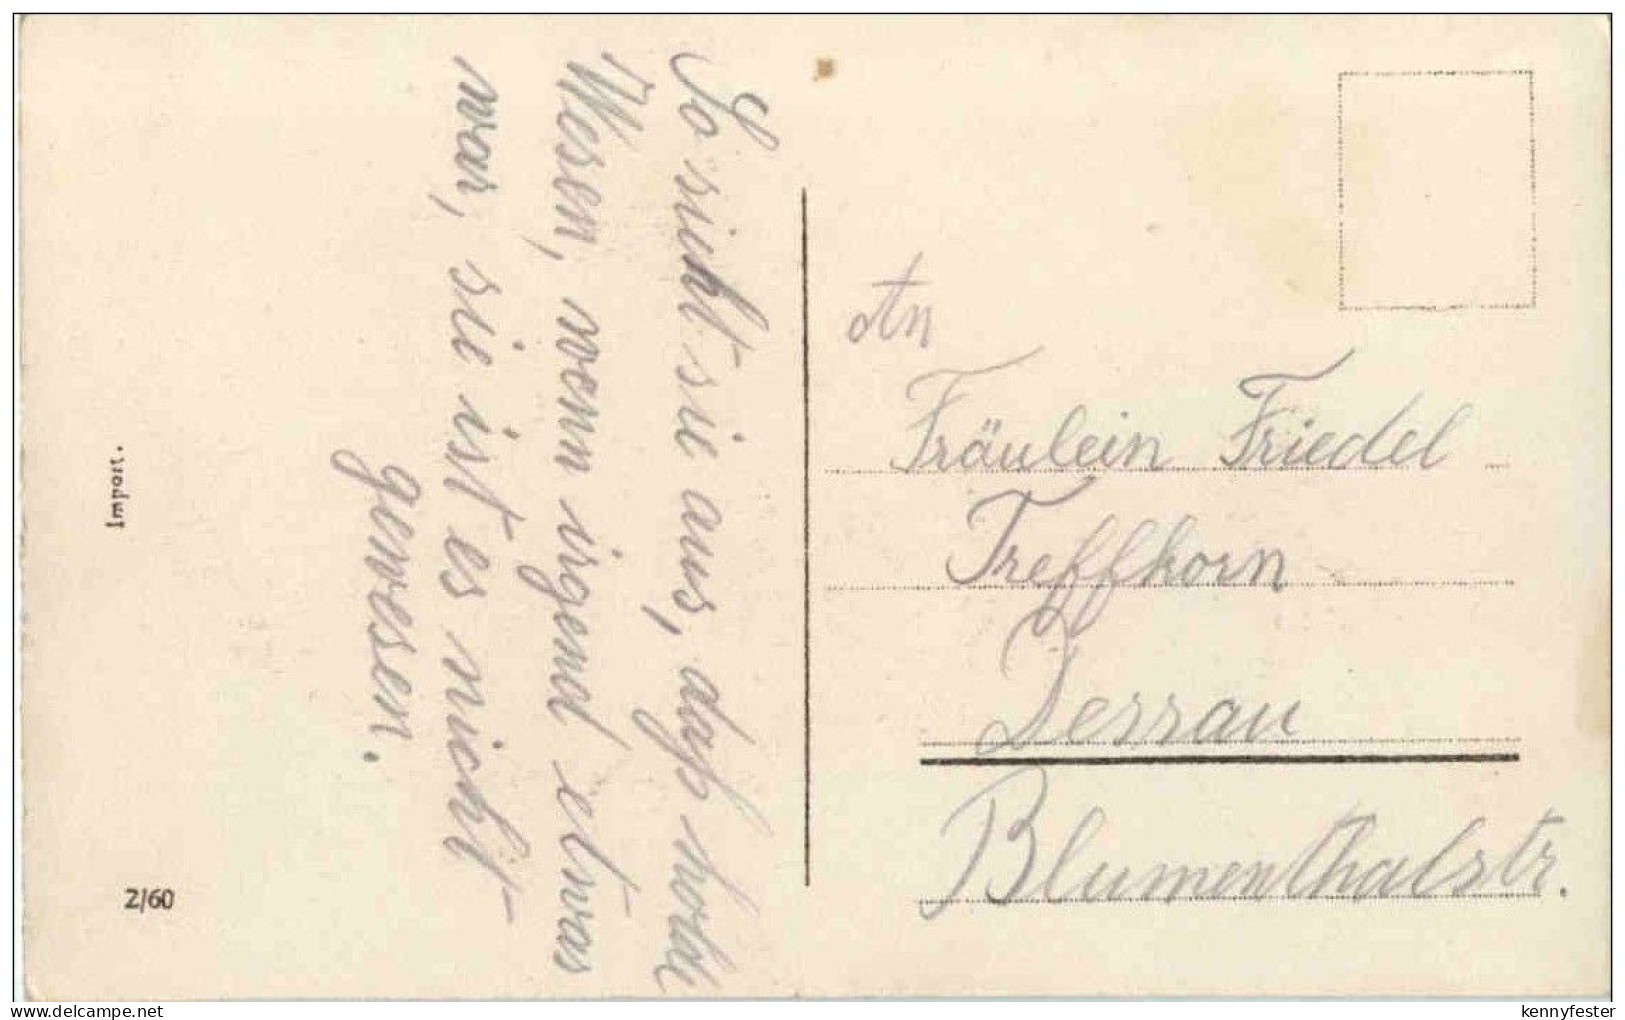 So sieht sie aus, daß holde
Wesen, wenn irgend etwas
war, sie ist es nicht
gewesen.
An
Fräulein Friedel
Treffkorn
Dessau
Blumenthalstr.
Import.
Z/60
www.delcampe.net
kennyfester